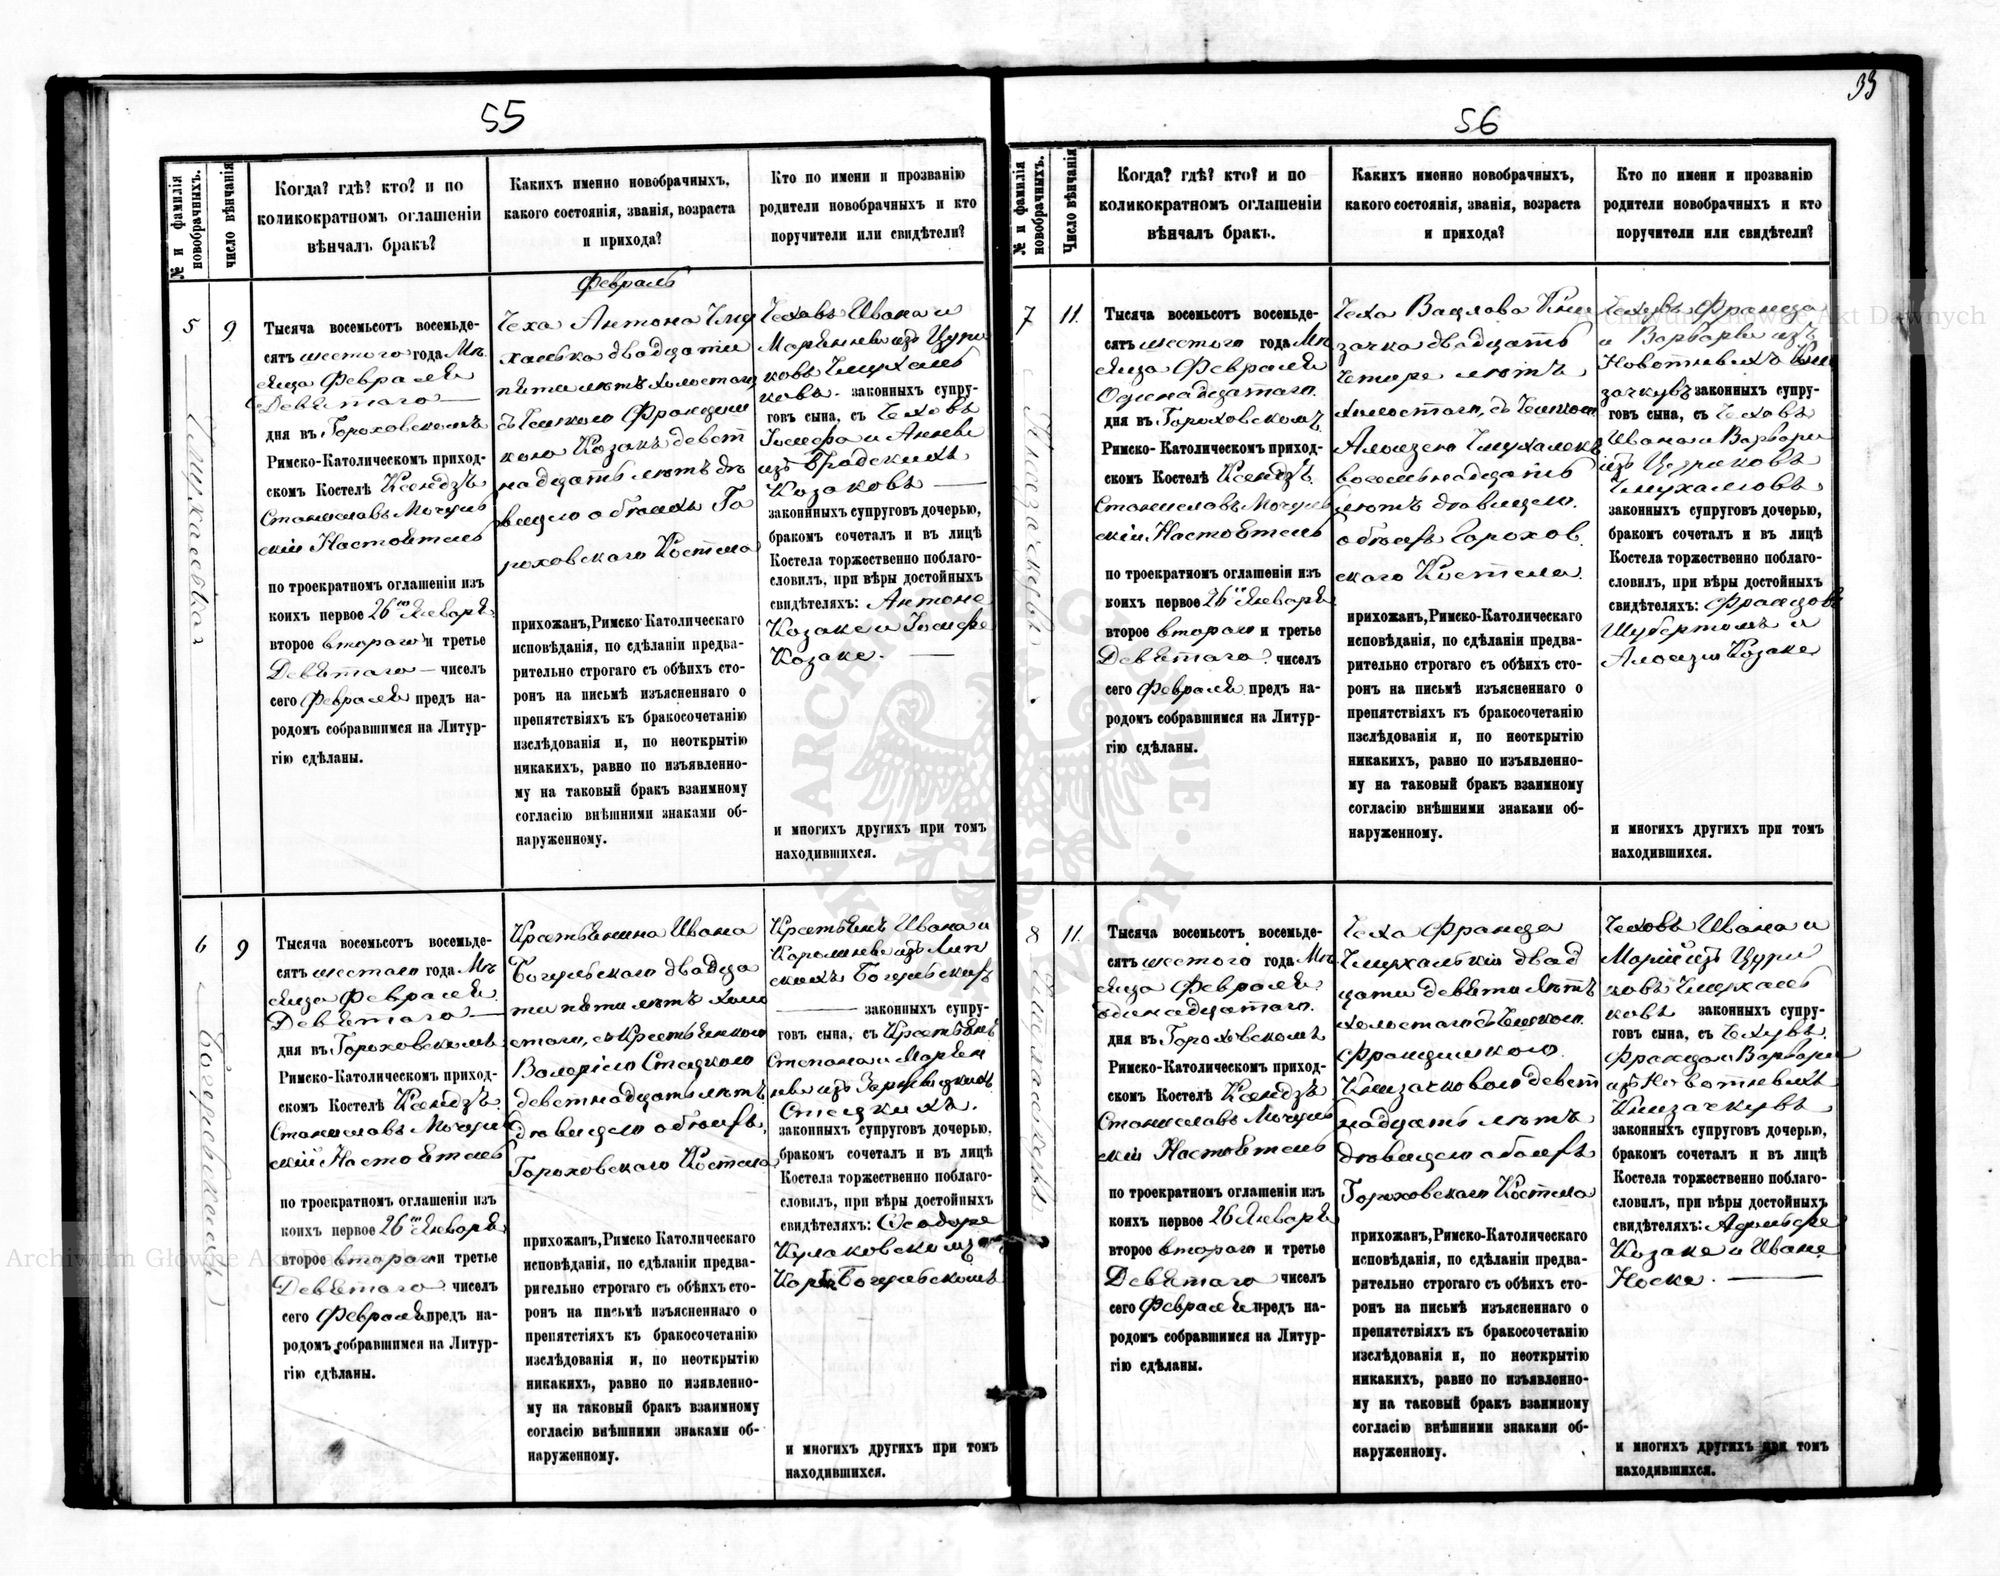 55
№ и фамилія новобрачныхъ.
число вѣнчанія
Когда? гдѣ? кто? и по
коликократномъ оглашеніи
вѣнчалъ бракъ?
Какихъ именно новобрачныхъ,
какого состоянія, званія, возраста
и прихода?
Кто по имени и прозванію
родители новобрачныхъ и кто
поручители или свидѣтели?
Февраль
5
9
Тысяча восемьсотъ восемьде-
сятъ шестого года Мѣ
сяца Февраля
Девятаго
дня въ Гороховскомъ
Римско-Католическомъ приход-
скомъ Костелѣ Ксендзъ
Станиславъ Мочуль
скій Настоятель
по троекратномъ оглашеніи изъ
коихъ первое 26го Января
второе второго и третье
Девятаго чиселъ
сего Февраля предъ на-
родомъ собравшимся на Литур-
гію сдѣланы.
Чеха Антона
двадцати
пяти лѣтъ холостаго
съ Чешкою
Козакъ девят
надцать лѣтъ дѣ
вицею обоихъ Го
роховскаго Костела
прихожанъ, Римско-Католическаго
исповѣданія, по сдѣланіи предва-
рительно строгаго съ обѣихъ сто-
ронъ на письмѣ изъясненнаго о
препятствіяхъ къ бракосочетанію
изслѣдованія и, по неоткрытію
никакихъ, равно по изъявленно-
му на таковый бракъ взаимному
согласію внѣшними знаками об-
наруженному.
Чеховъ Ивана и
законныхъ супру-
говъ сына, съ Чеховъ
Іосифа и Анны
изъ Бродскихъ
Козаковъ
законныхъ супруговъ дочерью,
бракомъ сочеталъ и въ лицѣ
Костела торжественно поблаго-
словилъ, при вѣры достойныхъ
свидѣтеляхъ: Антоне
Козаке и Іосифе
Козаке.
и многихъ другихъ при томъ
находившихся.
6
9
Тысяча восемьсотъ восемьде-
сятъ шестого года Мѣ
сяца Февраля
Девятаго
дня въ Гороховскомъ
Римско-Католическомъ приход-
скомъ Костелѣ Ксендзъ
Станиславъ Мочуль
скій Настоятель
по троекратномъ оглашеніи изъ
коихъ первое 26го Января
второе второго и третье
Девятаго чиселъ
сего Февраля предъ на-
родомъ собравшимся на Литур-
гію сдѣланы.
Крестьянина Ивана
двадца
ти пяти лѣтъ холо
стаго, съ Крестьянкою
Валеріею Стецкою
девятнадцать лѣтъ
дѣвицею обоихъ
Гороховскаго Костела
прихожанъ, Римско Католическаго
исповѣданія, по сдѣланіи предва-
рительно строгаго съ обѣихъ сто-
ронъ на письмѣ изъясненнаго о
препятстіяхъ къ бракосочетанію
изслѣдованія и, по неоткрытію
никакихъ, равно по изявленно-
му на таковый бракъ взаимному
согласію внѣшними знаками об-
наруженному.
Крестьянъ Ивана и
законныхъ супру-
говъ сына, съ Крестьянъ
Степана и Маріан
Стецкихъ.
законныхъ супруговъ дочерью,
бракомъ сочеталъ и въ лицѣ
Костела торжественно поблаго-
словилъ, при вѣры достойныхъ
свидѣтеляхъ: Феодоре
Кулаковскомъ
и многихъ другихъ при томъ
находившихся.
39
56
№ и фамилія новобрачныхъ.
Число вѣнчанія
Когда? гдѣ? кто? и по
коликократномъ оглашеніи
вѣнчалъ бракъ.
Какихъ именно новобрачныхъ,
какого состоянія, званія, возраста
и прихода?
Кто по имени и прозванію
родители новобрачныхъ и кто
поручители или свидѣтели?
7
11.
Тысяча восемьсотъ восемьде-
сятъ шестого года Мѣ
сяца Февраля
Одинадцатаго.
дня въ Гороховскомъ
Римско-Католическомъ приход-
скомъ Костелѣ Ксендзъ
Станиславъ Мочуль
скій Настоятель
по троекратномъ оглашеніи изъ
коихъ первое 26го Января
второе второго и третье
Девятаго. чиселъ
сего Февраля предъ на-
родомъ собравшимся на Литур-
гію сдѣланы.
Чеха Вацлава
двадцать
четыре лѣтъ
холостаго, съ Чешкою
восемьнадцать
лѣтъ дѣвицею.
обоихъ Горохов
скаго Костела.
прихожанъ, Римско-Католическаго
исповѣданія, по сдѣланіи предва-
рительно строгаго съ обѣихъ сто-
ронъ на письмѣ изъясненнаго о
препятствіяхъ къ бракосочетанію
изслѣдованія и, по неоткрытію
никакихъ, равно по изъявленно-
му на таковый бракъ взаимному
согласію внѣшними знаками об-
наруженному.
Чеховъ Франца
и Варвары изъ
законныхъ супру-
говъ сына, съ Чеховъ
Ивана и Варвары
законныхъ супруговъ дочерью,
бракомъ сочеталъ и въ лицѣ
Костела торжественно поблаго-
словилъ, при вѣры достойныхъ
свидѣтеляхъ:
Шубертомъ и
Алоизіи Козаке
и многихъ другихъ при томъ
находившихся.
8
11.
Тысяча восемьсотъ восемьде-
сятъ шестого года Мѣ
сяца Февраля
одинадцатаго.
дня въ Гороховскомъ
Римско-Католическомъ приход-
скомъ Костелѣ Ксендзъ
Станиславъ Мочуль
скій Настоятель
по троекратномъ оглашеніи изъ
коихъ первое 26 Января
второе второго и третье
Девятаго чиселъ
сего Февраля предъ на-
родомъ собравшимся на Литур-
гію сдѣланы.
Чеха Франца
двад
цати девяти лѣтъ
холостаго съ Чешкою
девят
надцать лѣтъ
дѣвицею обоихъ
Гороховскаго Костела
прихожанъ, Римско-Католическаго
исповѣданія, по сдѣланіи предва-
рительно строгаго съ обѣихъ сто-
ронъ на письмѣ изъясненнаго о
препятствіяхъ къ бракосочетанію
изслѣдованія и, по неоткрытію
никакихъ, равно по изъявленно-
му на таковый бракъ взаимному
согласію внѣшними знаками об-
наруженному.
Чеховъ Ивана и
Маріи изъ
законныхъ супру-
говъ сына, съ Чеховъ
Франца и Варвары
законныхъ супруговъ дочерью,
бракомъ сочеталъ и въ лицѣ
Костела торжественно поблаго-
словилъ, при вѣры достойныхъ
свидѣтеляхъ:
Козаке и Иване
Носке.
и многихъ другихъ при томъ
находившихся.
Archiwum Główne Akt Dawnych
Archiwum Główne Akt Dawnych